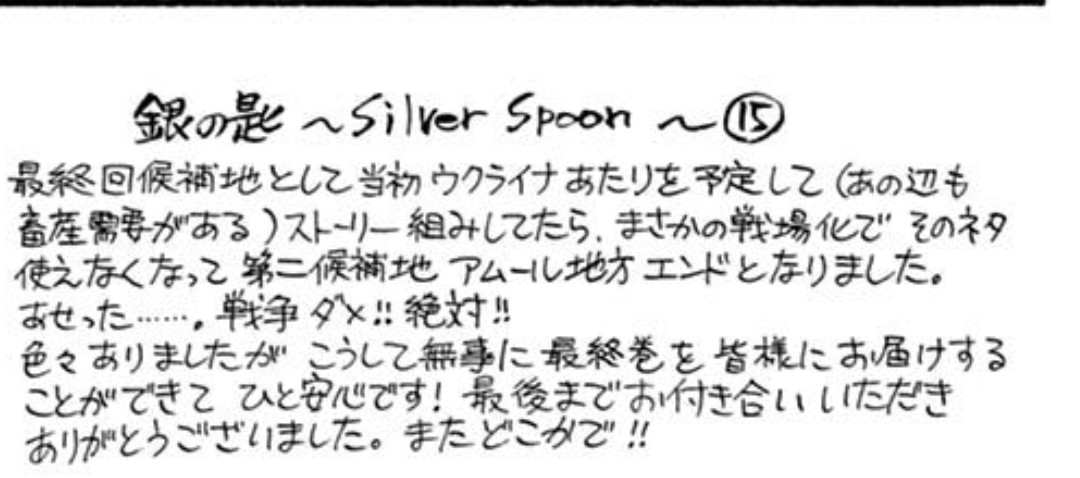 銀の匙 ～Silver Spoon ～⑮
最終回候補地として当初ウクライナあたりを予定して(あの辺も
畜産需要がある)ストーリー組みしてたら、まさかの戦場化でそのネタ
使えなくなって第二候補地アムール地方エンドとなりました。
あせった……。戦争ダメ!!絶対!!
色々ありましたが こうして無事に最終巻を皆様にお届けする
ことができて ひと安心です! 最後までお付き合いいただき
ありがとうございました。またどこかで!!